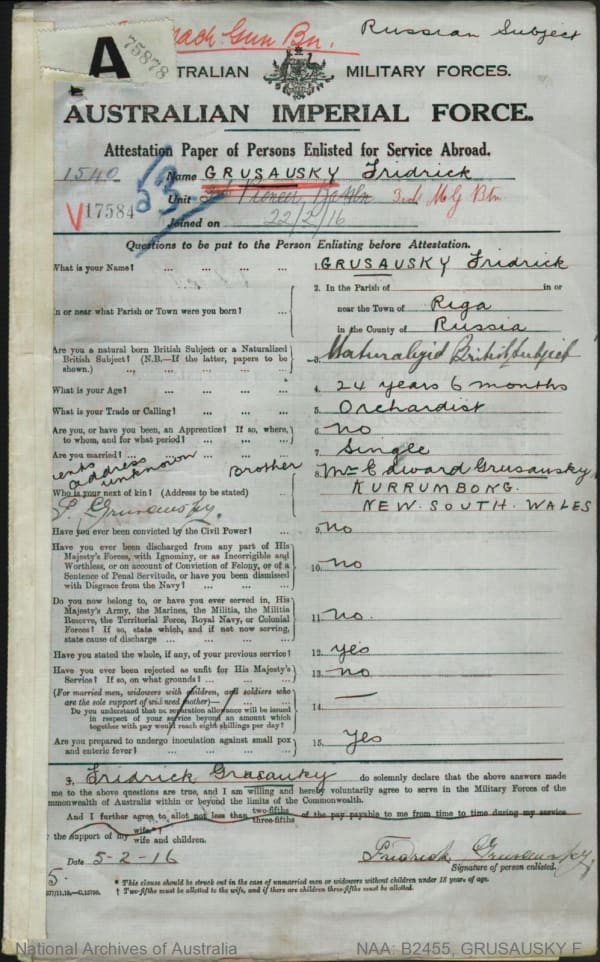 Mach. Gun Bn.
Russian Subject
A
75878
TRALIAN MILITARY FORCES.
AUSTRALIAN IMPERIAL FORCE.
Attestation Paper of Persons Enlisted for Service Abroad.
1540
Name GRUSAUSKY Fridrick
V17584
Unit Pioneer, 3rd M/G Btn
Joined on 22/2/16
Questions to be put to the Person Enlisting before Attestation.
What is your Name? ... ... ... ... 1. GRUSAUSKY Fridrick
2. In the Parish of in or
In or near what Parish or Town were you born? ... near the Town of Riga
in the County of Russia
Are you a natural born British Subject or a Naturalized
British Subject? (N.B.—If the latter, papers to be
shown.) 3. British Subject
What is your Age? ... ... ... ... 4. 24 years 6 months
What is your Trade or Calling? ... ... ... 5. Orchardist
Are you, or have you been, an Apprentice? If so, where,
to whom, and for what period? ... ... ... 6. no
Are you married? ... ... ... ... 7. Single
address
unknown
Brother
8. Mr Edward Grusausky
Who is your next of kin? (Address to be stated)
KURRUMBONG.
NEW. SOUTH. WALES
Have you ever been convicted by the Civil Power? ... 9. no
Have you ever been discharged from any part of His
Majesty's Forces, with Ignominy, or as Incorrigible and
Worthless, or on account of Conviction of Felony, or of a
Sentence of Penal Servitude, or have you been dismissed
with Disgrace from the Navy? ... ... ... 10. no
Do you now belong to, or have you ever served in, His
Majesty's Army, the Marines, the Militia, the Militia
Reserve, the Territorial Force, Royal Navy, or Colonial
Forces? If so, state which, and if not now serving,
state cause of discharge ... ... ... 11. no.
Have you stated the whole, if any, of your previous service? 12. yes
Have you ever been rejected as unfit for His Majesty's
Service? If so, on what grounds? ... ... 13. no
(For married men, widowers with children, and soldiers who
are the sole support of widowed mother)—
Do you understand that no separation allowance will be issued
in respect of your service beyond an amount which
together with pay would reach eight shillings per day? 14. —
Are you prepared to undergo inoculation against small pox
and enteric fever? ... ... ... ... 15. Yes
I, Fridrick Grusausky do solemnly declare that the above answers made
me to the above questions are true, and I am willing and hereby voluntarily agree to serve in the Military Forces of the
mmonwealth of Australia within or beyond the limits of the Commonwealth.
And I further agree to allot not less than two-fifths three-fifths of the pay payable to me from time to time during my service
the support of my wife* wife and children.
Date 5-2-16
Fridrick Grusausky
Signature of person enlisted.
* This clause should be struck out in the case of unmarried men or widowers without children under 18 years of age.
† Two-fifths must be allotted to the wife, and if there are children three-fifths must be allotted.
National Archives of Australia
NAA: B2455, GRUSAUSKY F